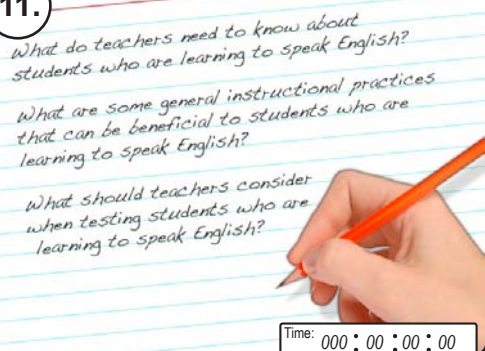 11.
What do teachers need to know about
students who are learning to speak English?
What are some general instructional practices
that can be beneficial to students who are
learning to speak English?
What should teachers consider
when testing students who are
learning to speak English?
Time: 000 : 00 : 00 : 00